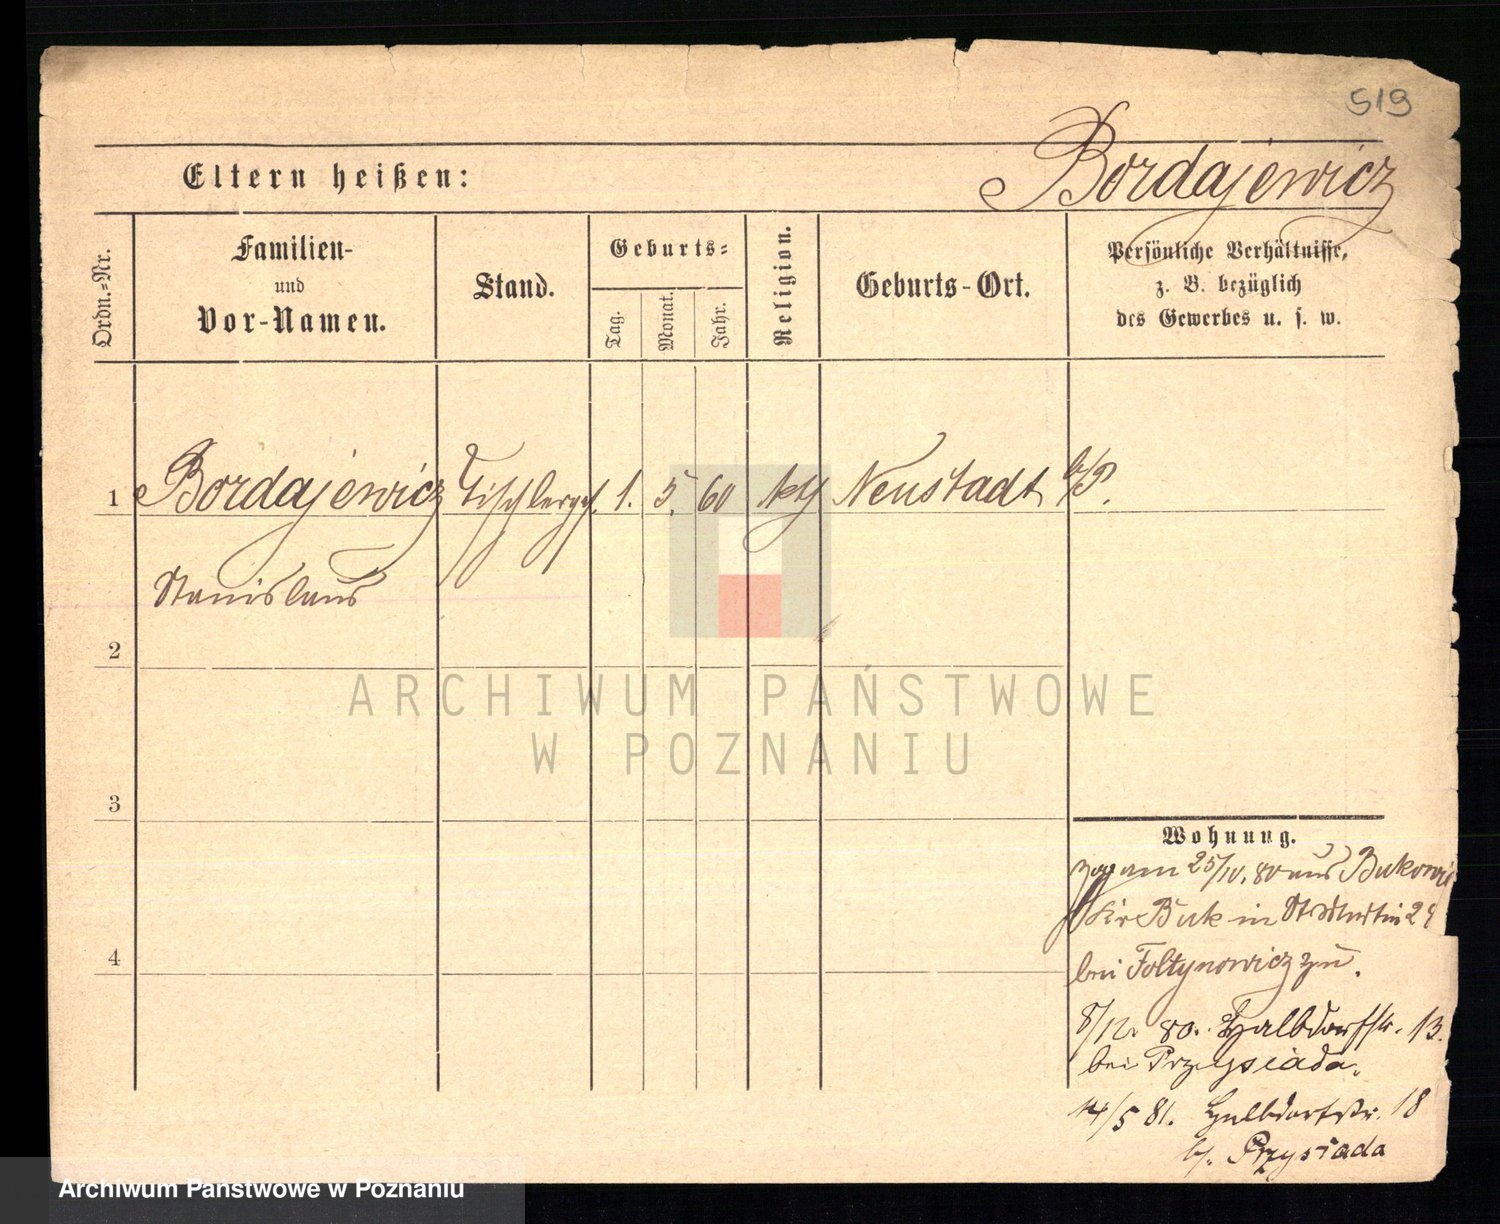 519
Eltern heißen:
Bordajewicz
Ordn.-Nr.
Familien-
und
Vor-Namen.
Stand.
Geburts-
Tag.
Monat.
Jahr.
Religion.
Geburts-Ort.
Persönliche Verhältnisse,
z. B. bezüglich
des Gewerbes u. s. w.
1 Bordajewicz Tischlerges. 1. 5. 60 kth Neustadt b/P.
Stanislaus
2
3
4
ARCHIWUM PAŃSTWOWE
W POZNANIU
Wohnung.
zog am 25/10. 80 aus Bukowie
Kr Buk in St Martin 24
bei Foltynowicz zu.
8/12. 80. Halbdorfstr. 13.
bei Przysiada.
14/5 81. Halbdorfstr. 18
b/. Przysiada
Archiwum Państwowe w Poznaniu